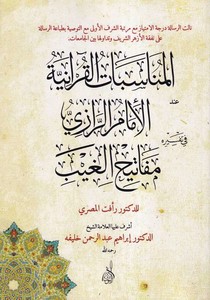 نالت الرسالة درجة الامتياز مع مرتبة الشرف الأولى مع التوصية بطباعة الرسالة
على نفقة الأزهر الشريف وتداولها بين الجامعات.
المناسبات القرآنية
عند
الإمام الرازي
في تفسيره
مفاتيح الغيب
للدكتور رأفت المصري
أشرف عليها العلامة الشيخ
الدكتور إبراهيم عبد الرحمن خليفة
رحمه الله